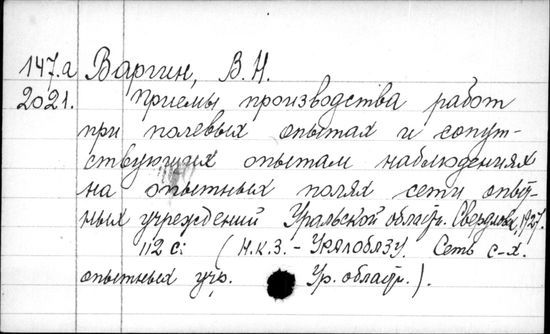 147.а Варгин, В.Н.
2021. Приемы производства работ
при полевых опытах и сопут-
ствующих опытам наблюдениях
на опытных полях сети опыт-
ных учреждений Уральской области. Свердловск, 1927.
112 с. (Н.К.З. - УРАЛОБЛЗУ. Сеть с-х.
опытных учр. Ур. области.).